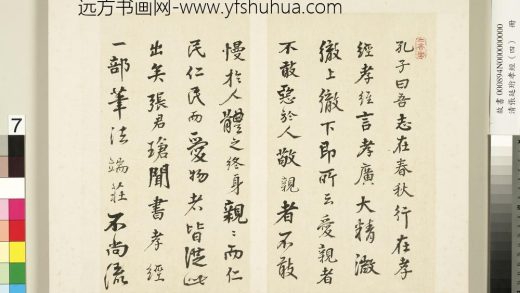 远方书画网-www.yfshuhua.com
孔子曰吾志在春秋行在孝
經孝經言孝廣大精微
徹上徹下即所云愛親者
不敢惡於人敬親者不敢
慢於人體之終身親〻而仁
民仁民而愛物者皆從此
出矣張君瑲聞書孝經
一部筆法端莊不尚流
7
故書 000894N000000000 冊
清張廷珩孝經(四)